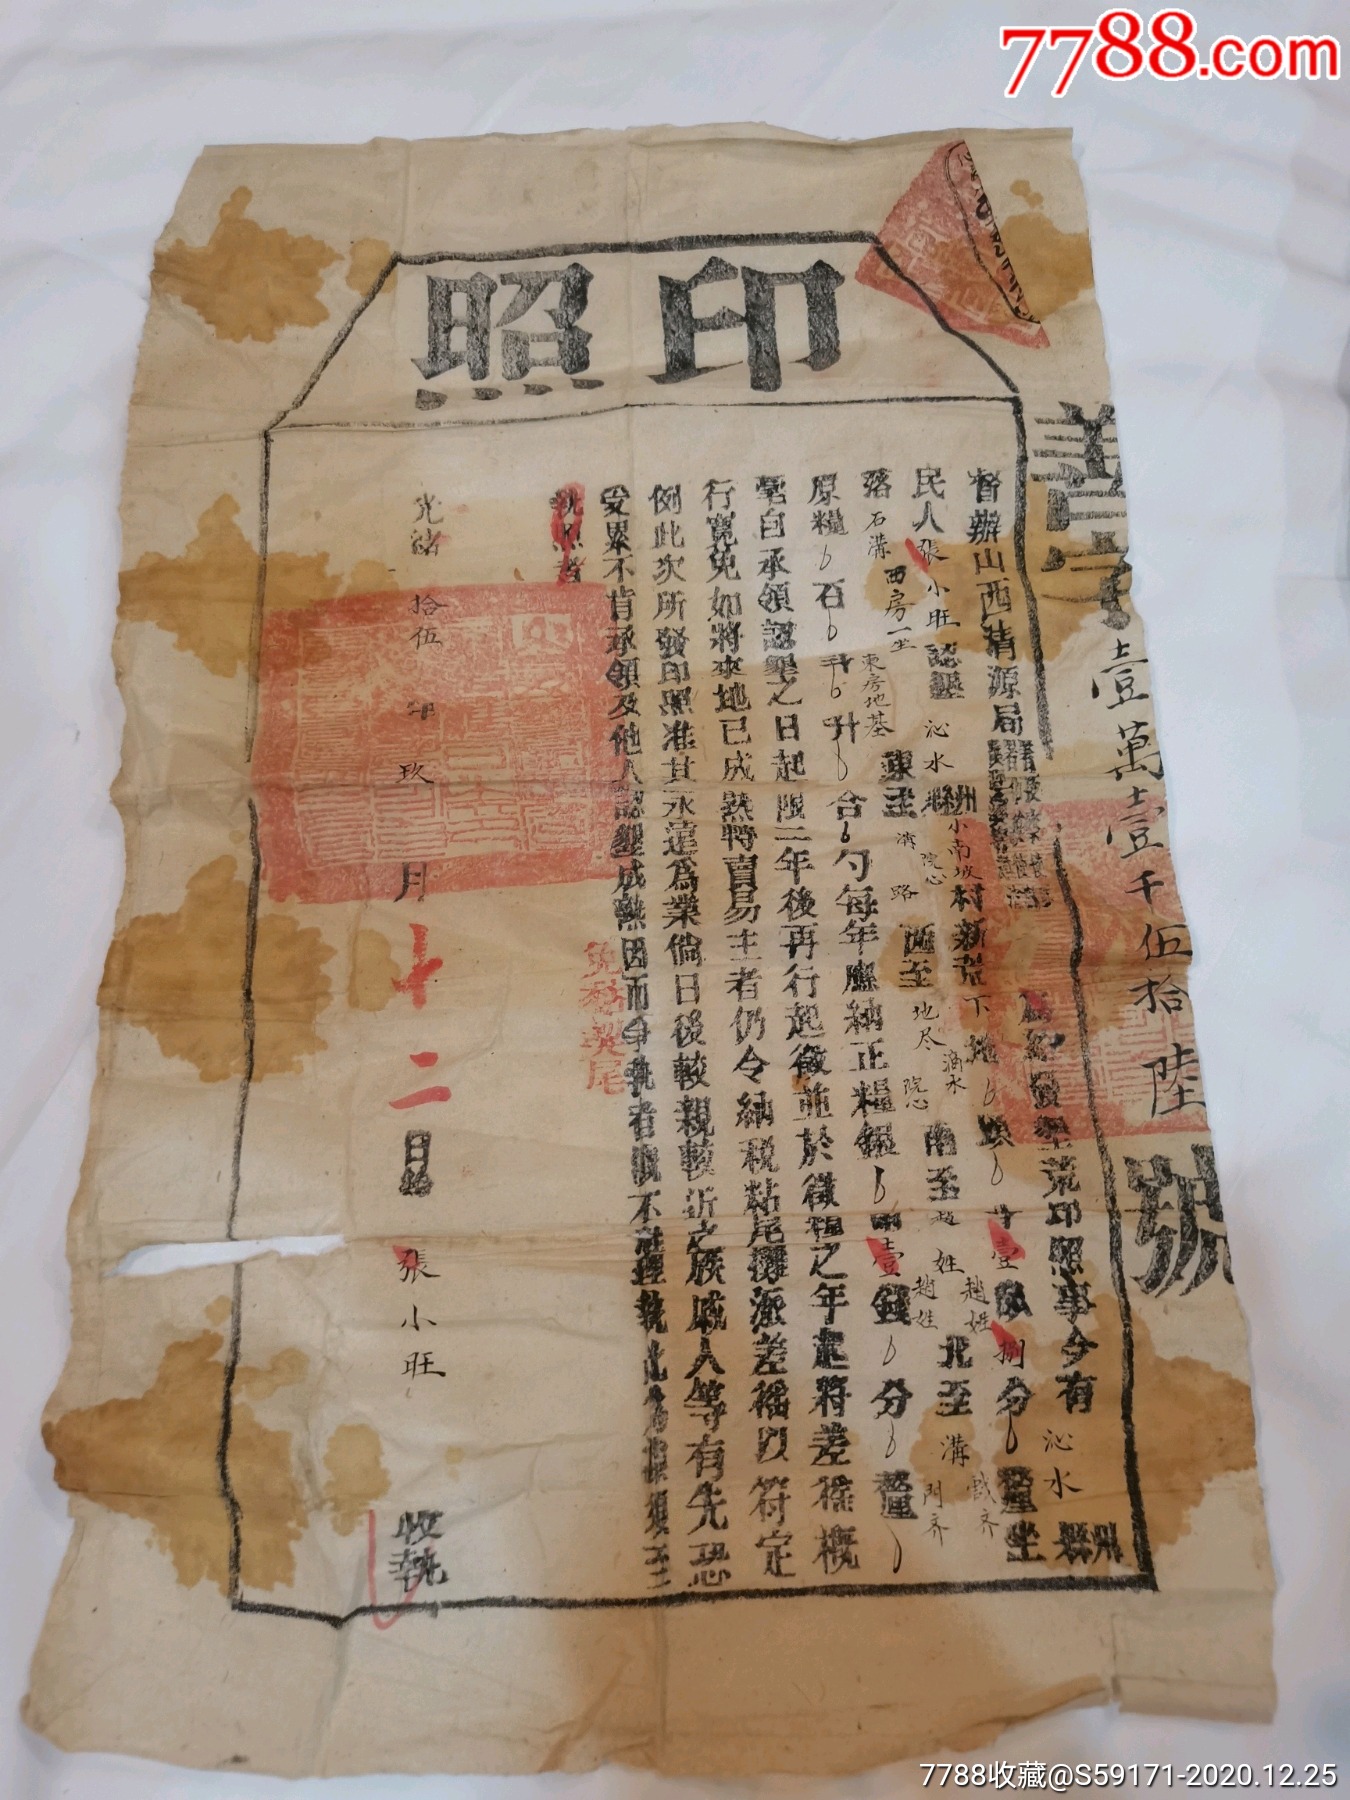 7788.com
印照
善字壹萬壹千伍拾陸號
督辦山西清源局 為給發墾荒印照事今有沁水縣州
民人張小旺認墾沁水縣州小南坡村新荒下地 頃 壹畝捌分 釐坐
落石溝西房一坐東房地基東至溝路院心西至地尽滴水院心南至趙姓趙姓趙姓北至溝戲齐門齐
原糧 石 斗 升 合 勺每年應納正糧銀 兩壹錢 分 釐
毫自承領認墾之日起限二年後再行起徵並於徵糧之年起將差徭概
行寬免如將來地已成熟轉賣易主者仍令納稅粘尾攤派差徭以符定
例此次所發印照准其永遠為業倘日後較親較近之族戚人等有先恐
受累不肯承領及他人認墾成熟因而爭執者概不准理執此為據須至
執照者
免粘契尾
光緒拾伍年玖月十二日給張小旺收執
7788收藏@S59171-2020.12.25